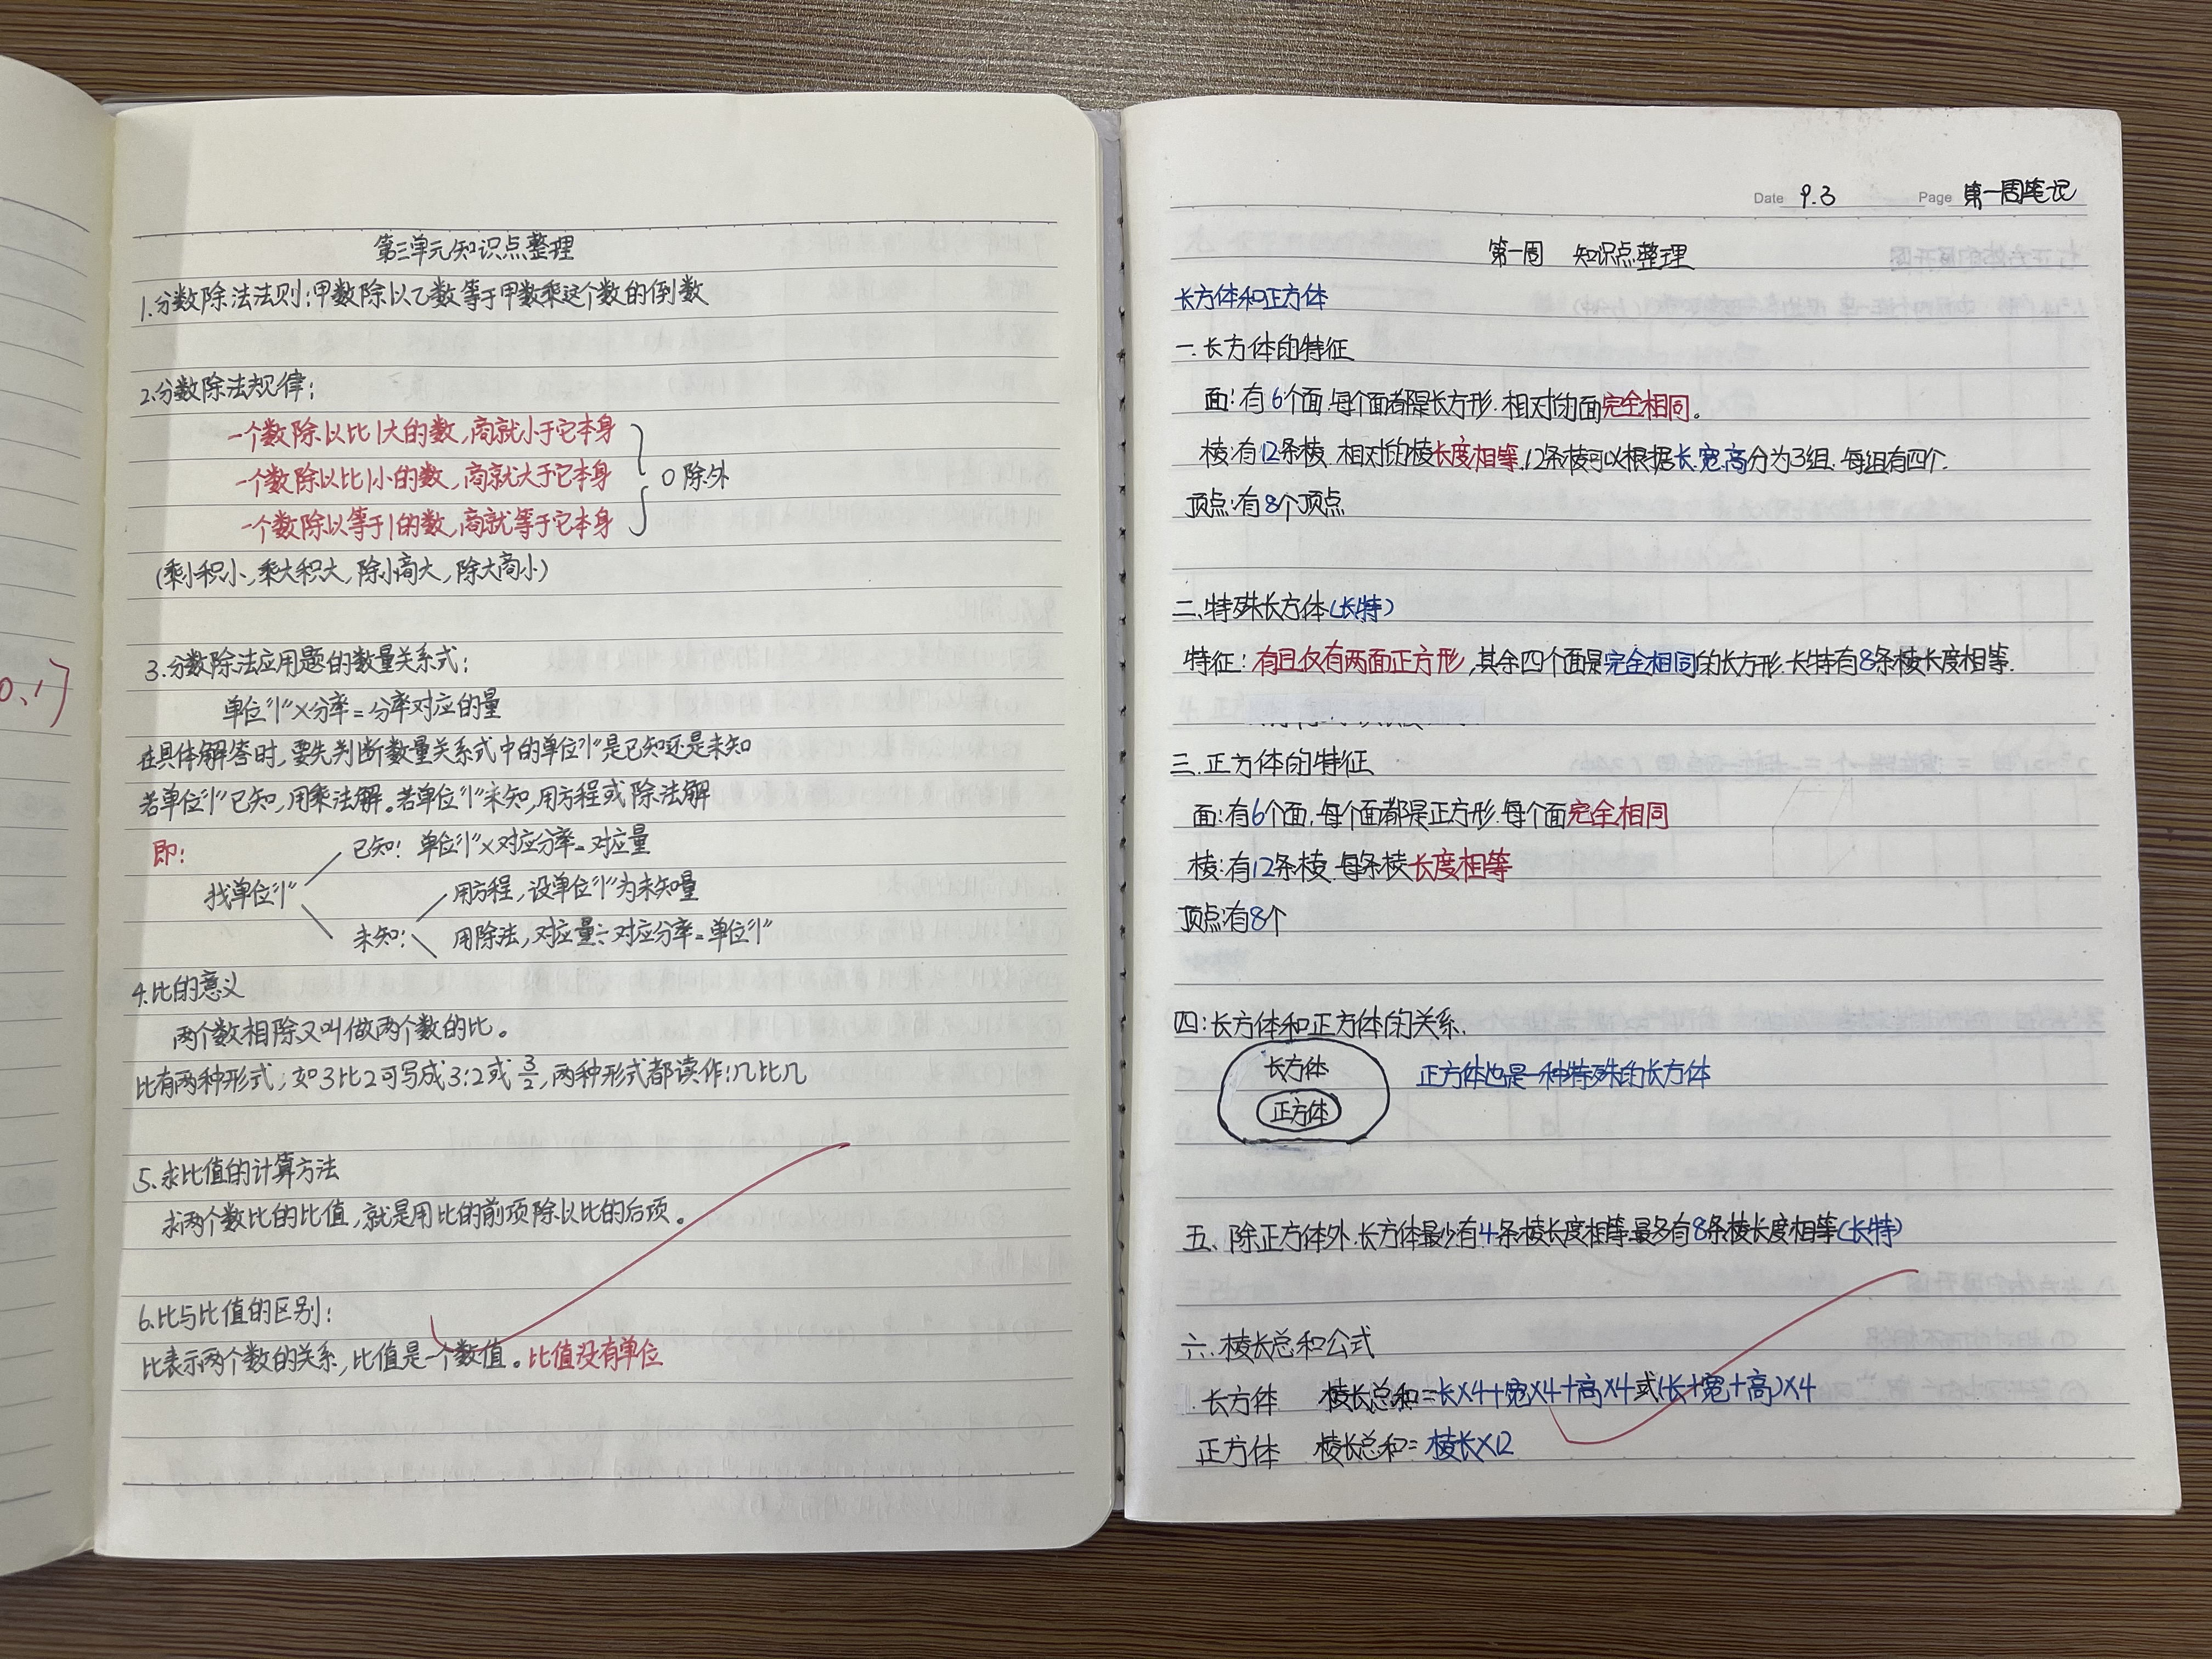 第三单元知识点整理
1.分数除法法则:甲数除以乙数等于甲数乘这个数的倒数
2.分数除法规律:
一个数除以比1大的数,商就小于它本身
一个数除以比1小的数,商就大于它本身
0除外
一个数除以等于1的数,商就等于它本身
(乘小积小,乘大积大,除小商大,除大商小)
3.分数除法应用题的数量关系式:
单位“1”×分率=分率对应的量
在具体解答时,要先判断数量关系式中的单位“1”是已知还是未知
若单位“1”已知,用乘法解。若单位“1”未知,用方程或除法解
即:
已知:单位“1”×对应分率=对应量
找单位“1”
用方程,设单位“1”为未知量
未知:
用除法,对应量÷对应分率=单位“1”
4.比的意义
两个数相除又叫做两个数的比。
比有两种形式,如3比2可写成3:2或3/2,两种形式都读作:几比几
5.求比值的计算方法
求两个数比的比值,就是用比的前项除以比的后项。
6.比与比值的区别:
比表示两个数的关系,比值是一个数值。比值没有单位
Date 9.3 Page 第一周笔记
第一周 知识点整理
长方体和正方体
一.长方体的特征
面:有6个面.每个面都是长方形.相对的面完全相同。
棱:有12条棱.相对的棱长度相等.12条棱可以根据长.宽.高分为3组.每组有四个.
顶点:有8个顶点
二.特殊长方体(长特)
特征:有且仅有两面正方形,其余四个面是完全相同的长方形.长特有8条棱长度相等.
三.正方体的特征
面:有6个面,每个面都是正方形.每个面完全相同
棱:有12条棱.每条棱长度相等
顶点:有8个
四:长方体和正方体的关系.
长方体
正方体也是一种特殊的长方体
正方体
五、除正方体外.长方体最少有4条棱长度相等.最多有8条棱长度相等(长特)
六.棱长总和公式
长方体 棱长总和=长×4+宽×4+高×4或(长+宽+高)×4
正方体 棱长总和=棱长×12